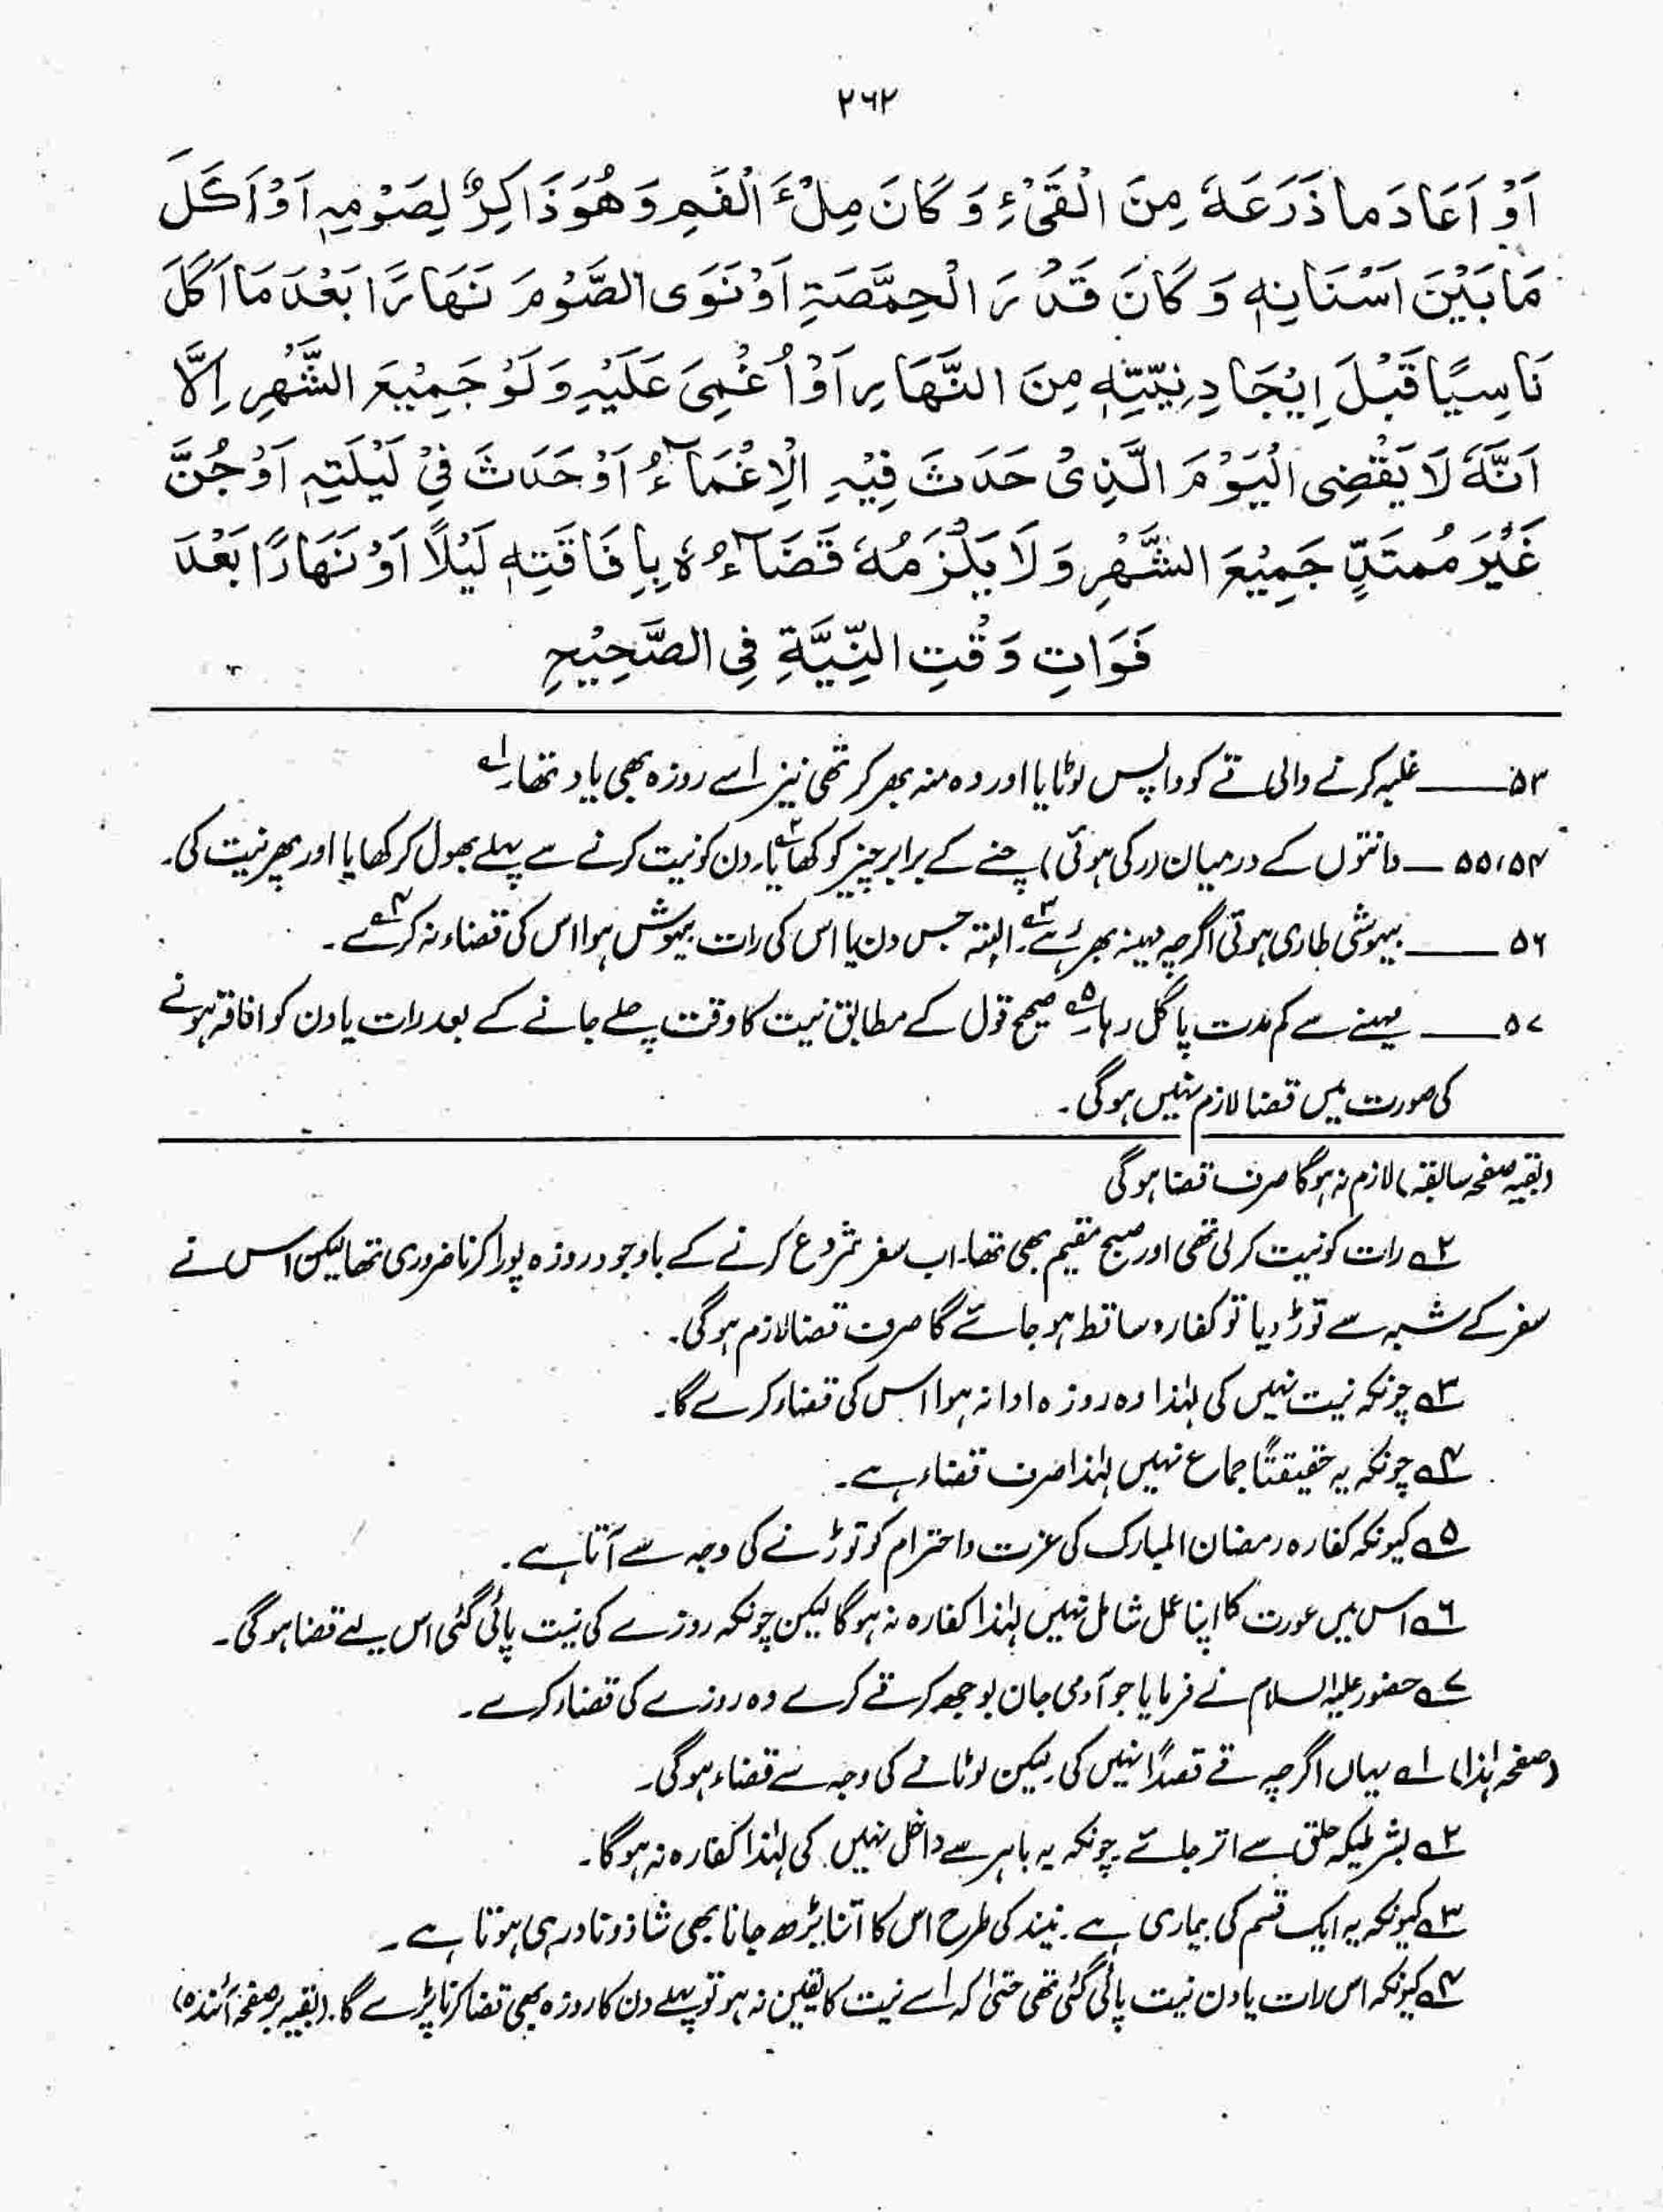 ۲۶۲
اَوْ اَعَادَ مَا ذَرَعَهٗ مِنَ الْقَیْءِ وَ کَانَ مِلْءَ الْفَمِ وَهُوَ ذَاکِرٌ لِصَوْمِهٖ اَوْ اَکَلَ
مَا بَیْنَ اَسْنَانِهٖ وَ کَانَ قَدْرَ الْحِمَّصَةِ اَوْ نَوَی الصَّوْمَ نَهَارًا بَعْدَ مَا اَکَلَ
نَاسِیًا قَبْلَ اِیْجَادِ نِیَّتِهٖ مِنَ النَّهَارِ اَوْ اُغْمِیَ عَلَیْهِ وَلَوْ جَمِیْعَ الشَّهْرِ اِلَّا
اَنَّهٗ لَا یَقْضِی الْیَوْمَ الَّذِیْ حَدَثَ فِیْهِ الْاِغْمَآءُ اَوْ حَدَثَ فِیْ لَیْلَتِهٖ اَوْ جُنَّ
غَیْرَ مُمتَدٍّ جَمِیْعَ الشَّهْرِ وَلَا یَلْزَمُهٗ قَضَآءُهٗ بِاِفَاقَتِهٖ لَیْلًا اَوْ نَهَارًا بَعْدَ
فَوَاتِ وَقْتِ النِّیَّةِ فِی الصَّحِیْحِ
۵۳ـــــ غلبہ کرنے والی قے کو واپس لوٹایا اور وہ منہ بھر کر تھی نیز اسے روزہ بھی یاد تھا۔ ۱ے
۵۴، ۵۵ ـــ دانتوں کے درمیان (رکی ہوئی) چنے کے برابر چیز کو کھایا ۲ے۔ دن کو نیت کرنے سے پہلے بھول کر کھایا اور پھر نیت کی۔
۵۶ ـــــ بیہوشی طاری ہوئی اگرچہ مہینہ بھر رہے ۳ے۔ البتہ جس دن یا اس کی رات بیہوش ہوا اس کی قضاء نہ کرے ۴ے۔
۵۷ ـــــ مہینے سے کم مدت پاگل رہا۔ ۵ے صحیح قول کے مطابق نیت کا وقت چلے جانے کے بعد رات یا دن کو افاقہ ہونے
کی صورت میں قضا لازم نہیں ہوگی۔
(بقیہ صفحہ سابقہ) لازم نہ ہوگا صرف قضا ہوگی
۲ے رات کو نیت کرلی تھی اور صبح مقیم بھی تھا۔ اب سفر شروع کرنے کے باوجود روزہ پورا کرنا ضروری تھا لیکن اس نے
سفر کے شبہ سے توڑ دیا تو کفارہ ساقط ہو جائے گا صرف قضا لازم ہوگی۔
۳ے چونکہ نیت نہیں کی لہٰذا وہ روزہ ادا نہ ہوا اس کی قضاء کرے گا۔
۴ے چونکہ یہ حقیقتًا جماع نہیں لہٰذا صرف قضاء ہے۔
۵ے کیونکہ کفارہ رمضان المبارک کی عزت و احترام کو توڑنے کی وجہ سے آتا ہے۔
۶ے اس میں عورت کا اپنا عمل شامل نہیں لہٰذا کفارہ نہ ہوگا لیکن چونکہ روزے کی نیت پائی گئی اس لیے قضا ہوگی۔
۷ے حضور علیہ السلام نے فرمایا جو آدمی جان بوجھ کر قے کرے وہ روزے کی قضاء کرے۔
(صفحہ ہٰذا) ۱ے یہاں اگرچہ قے قصدًا نہیں کی۔ لیکن لوٹانے کی وجہ سے قضاء ہوگی۔
۲ے بشرطیکہ حلق سے اتر جائے۔ چونکہ یہ باہر سے داخل نہیں کی لہٰذا کفارہ نہ ہوگا۔
۳ے کیونکہ یہ ایک قسم کی بیماری ہے۔ نیند کی طرح اس کا اتنا بڑھ جانا بھی شاذ و نادر ہی ہوتا ہے۔
۴ے کیونکہ اس رات یا دن نیت پائی گئی تھی حتیٰ کہ اسے نیت کا یقین نہ ہو تو پہلے دن کا روزہ بھی قضا کرنا پڑے گا۔ (بقیہ بر صفحہ آئندہ)